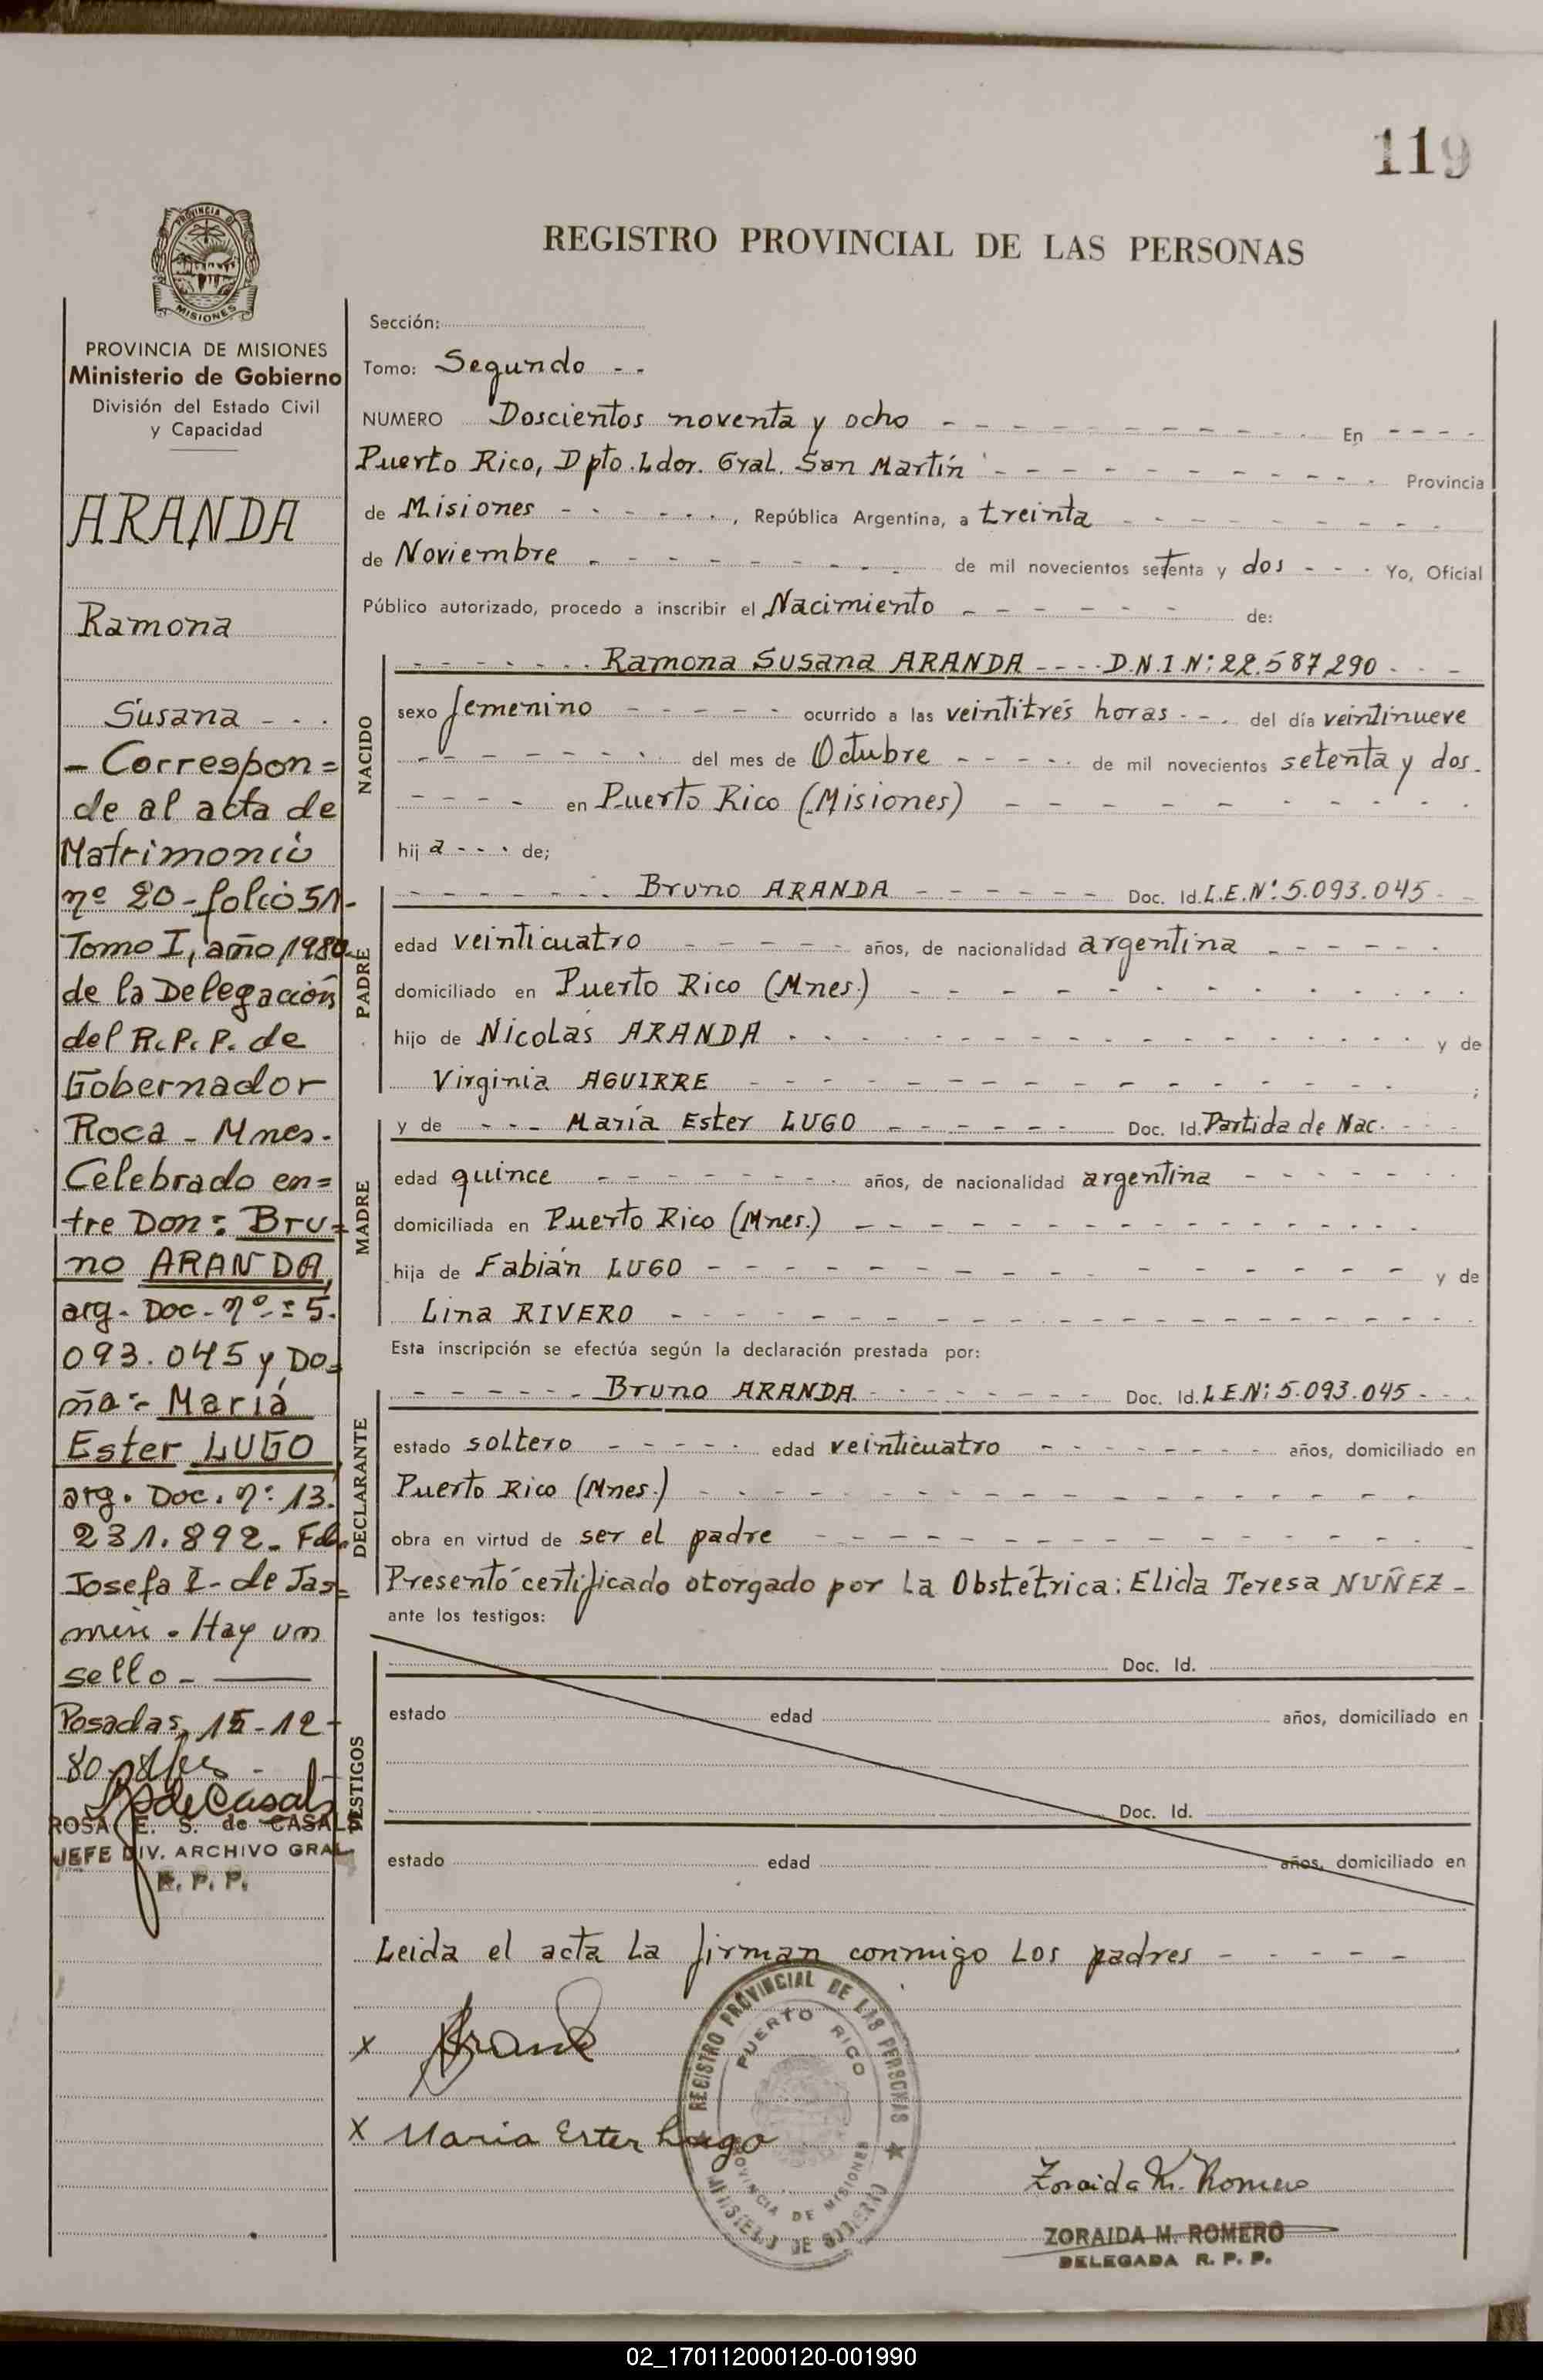 119
REGISTRO PROVINCIAL DE LAS PERSONAS
PROVINCIA DE
MISIONES
PROVINCIA DE MISIONES
Ministerio de Gobierno
División del Estado Civil
y Capacidad
ARANDA
Ramona
Susana - - .
- Correspon=
de al acta de
Matrimonio
nº 20 - folio 51-
Tomo I, año 1980-
de la Delegación
del R. P. P. de
Gobernador
Roca - Mnes.
Celebrado en=
tre Don: Bru=
no ARANDA,
arg. Doc. nº: 5.
093.045 y Do=
ña: María
Ester LUGO
arg. Doc. nº: 13.
231.892. Fdo.
Josefa I. de Jas=
min. Hay un
sello -
Posadas, 15-12-
80
ROSA E. S. de CASALS
JEFE DIV. ARCHIVO GRAL
R. P. P.
Sección:
Tomo: Segundo - -
NUMERO Doscientos noventa y ocho - - - En - - - -
Puerto Rico, Dpto. Ldor. Gral. San Martín - - - Provincia
de Misiones - - - , República Argentina, a treinta - - -
de Noviembre - - - de mil novecientos setenta y dos - - - Yo, Oficial
Público autorizado, procedo a inscribir el Nacimiento - - - de:
NACIDO
- - - Ramona Susana ARANDA - - - - D.N.I.N: 22.587290 - - -
sexo femenino - - - ocurrido a las veintitrés horas - - . del día veintinueve
- - - del mes de Octubre - - - de mil novecientos setenta y dos.
- - - - en Puerto Rico (Misiones) - - -
hij a - - - de;
PADRE
- - - Bruno ARANDA - - - Doc. Id. L.E.Nº: 5.093.045 - -
edad veinticuatro - - - años, de nacionalidad argentina - - -
domiciliado en Puerto Rico (Mnes.) - - -
hijo de Nicolás ARANDA - - - y de
Virginia AGUIRRE - - - ;
MADRE
y de - - - María Ester LUGO - - - Doc. Id. Partida de Nac. - - -
edad quince - - - años, de nacionalidad argentina - - -
domiciliada en Puerto Rico (Mnes.) - - -
hija de Fabián LUGO - - - y de
Lina RIVERO - - -
Esta inscripción se efectúa según la declaración prestada por:
DECLARANTE
- - - Bruno ARANDA - - - Doc. Id. L.E.N: 5.093.045 - - .
estado soltero - - - edad veinticuatro - - - años, domiciliado en
Puerto Rico (Mnes.) - - -
obra en virtud de ser el padre - - -
Presentó certificado otorgado por la Obstétrica: Elida Teresa NUÑEZ -
ante los testigos:
TESTIGOS
Doc. Id.
estado edad años, domiciliado en
Doc. Id.
estado edad años, domiciliado en
Leida el acta la firman conmigo los padres - - - - -
x
x Maria Ester Lugo
REGISTRO PROVINCIAL DE LAS PERSONAS
PUERTO RICO
PROVINCIA DE MISIONES
MINISTERIO DE GOBIERNO
Zoraida M. Romero
ZORAIDA M. ROMERO
DELEGADA R. P. P.
02_170112000120-001990